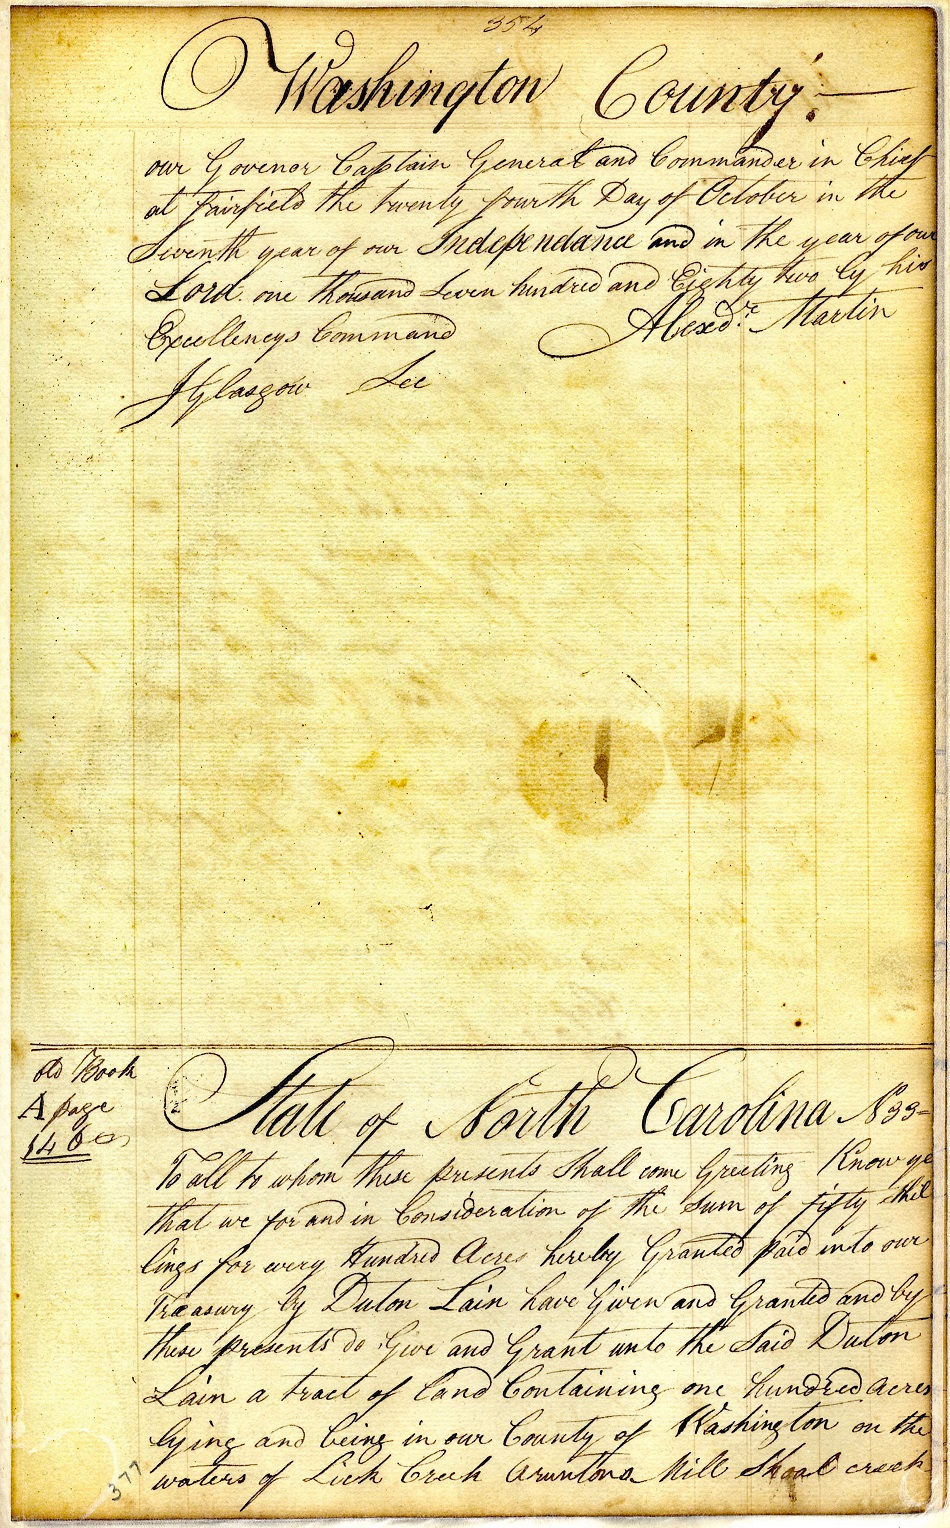 354
Washington County:
our Govenor Captain General and Commander in Chief
at Fairfield the twenty fourth Day of October in the
Seventh year of our Independance and in the year of our
Lord one thousand Seven hundred and Eighty two by his
Excellencys Command Alexdr. Martin
J Glasgow Sec
Old Book
A page
146
State of North Carolina No 33
To all to whom these presents Shall come Greeting Know ye
that we for and in Consideration of the Sum of fifty Shil
lings for every Hundred Acres hereby Granted paid into our
Treasury by Duton Lain have Given and Granted and by
these presents do Give and Grant unto the Said Duton
Lain a tract of Land Containing one hundred acres
lying and being in our County of Washington on the
waters of Lick Creek Mill Shoal creek
377